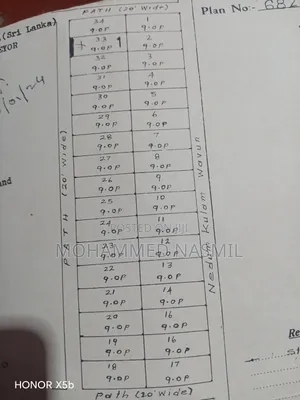 (Sri Lanka)
PATH (20' Wide)
Plan No:- 682
34 1
9.0P 9.0P
33 2
9.0P 9.0P
32 3
9.0P 9.0P
31 4
9.0P 9.0P
30 5
9.0P 9.0P
29 6
9.0P 9.0P
28 7
9.0P 9.0P
27 8
9.0P 9.0P
26 9
9.0P 9.0P
25 10
9.0P 9.0P
24 11
9.0P 9.0P
23 12
9.0P 9.0P
22 13
9.0P 9.0P
21 14
9.0P 9.0P
20 16
9.0P 9.0P
19 16
9.0P 9.0P
18 17
9.0P 9.0P
Path (20' wide)
PATH (20' wide)
Nedun Kulam Wavun
and
Re
MOHAMMED NASMIL
HONOR X5b